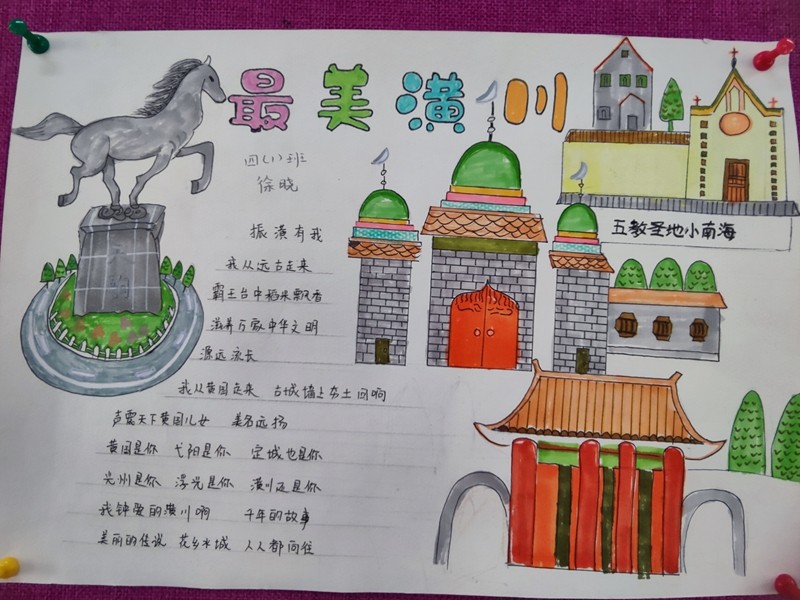 最美潢川
四(1)班
徐晓
五教圣地小南海
振潢有我
我从远古走来
霸王台中稻米飘香
滋养万家中华文明
源远流长
我从黄国走来 古城墙上夯土回响
声震天下黄国儿女 美名远扬
黄国是你 弋阳是你 定城也是你
光州是你 浮光是你 潢川还是你
我钟爱的潢川啊 千年的故事
美丽的传说 花乡水城 人人都向往